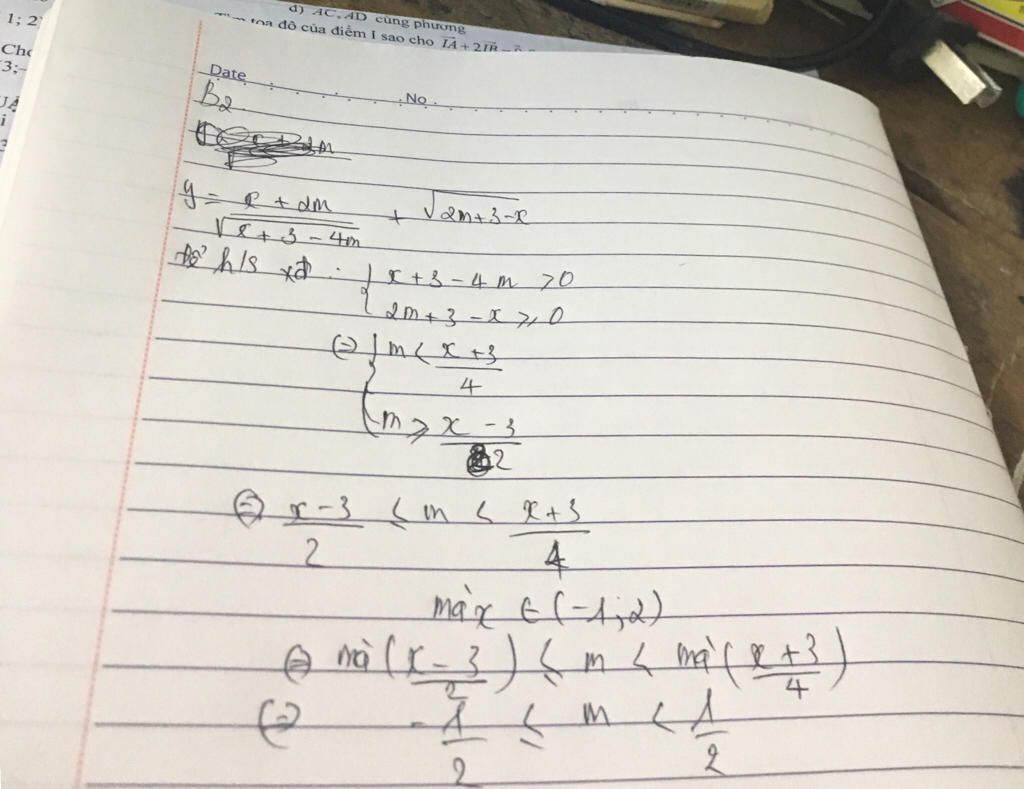 d) AC, AD cùng phương
1; 2
tọa độ của điểm I sao cho IA + 2IB
Date No
B2
y = (x + 2m)/√(x + 3 - 4m) + √(2m + 3 - x)
Để h/s xđ : { x + 3 - 4m > 0
2m + 3 - x ≥ 0
(=) { m < (x + 3)/4
m ≥ (x - 3)/2
(=) (x - 3)/2 ≤ m < (x + 3)/4
mà x ∈ (-1; 2)
(=) mà ((x - 3)/2) ≤ m < mà ((x + 3)/4)
(=) -1/2 ≤ m < 1/2